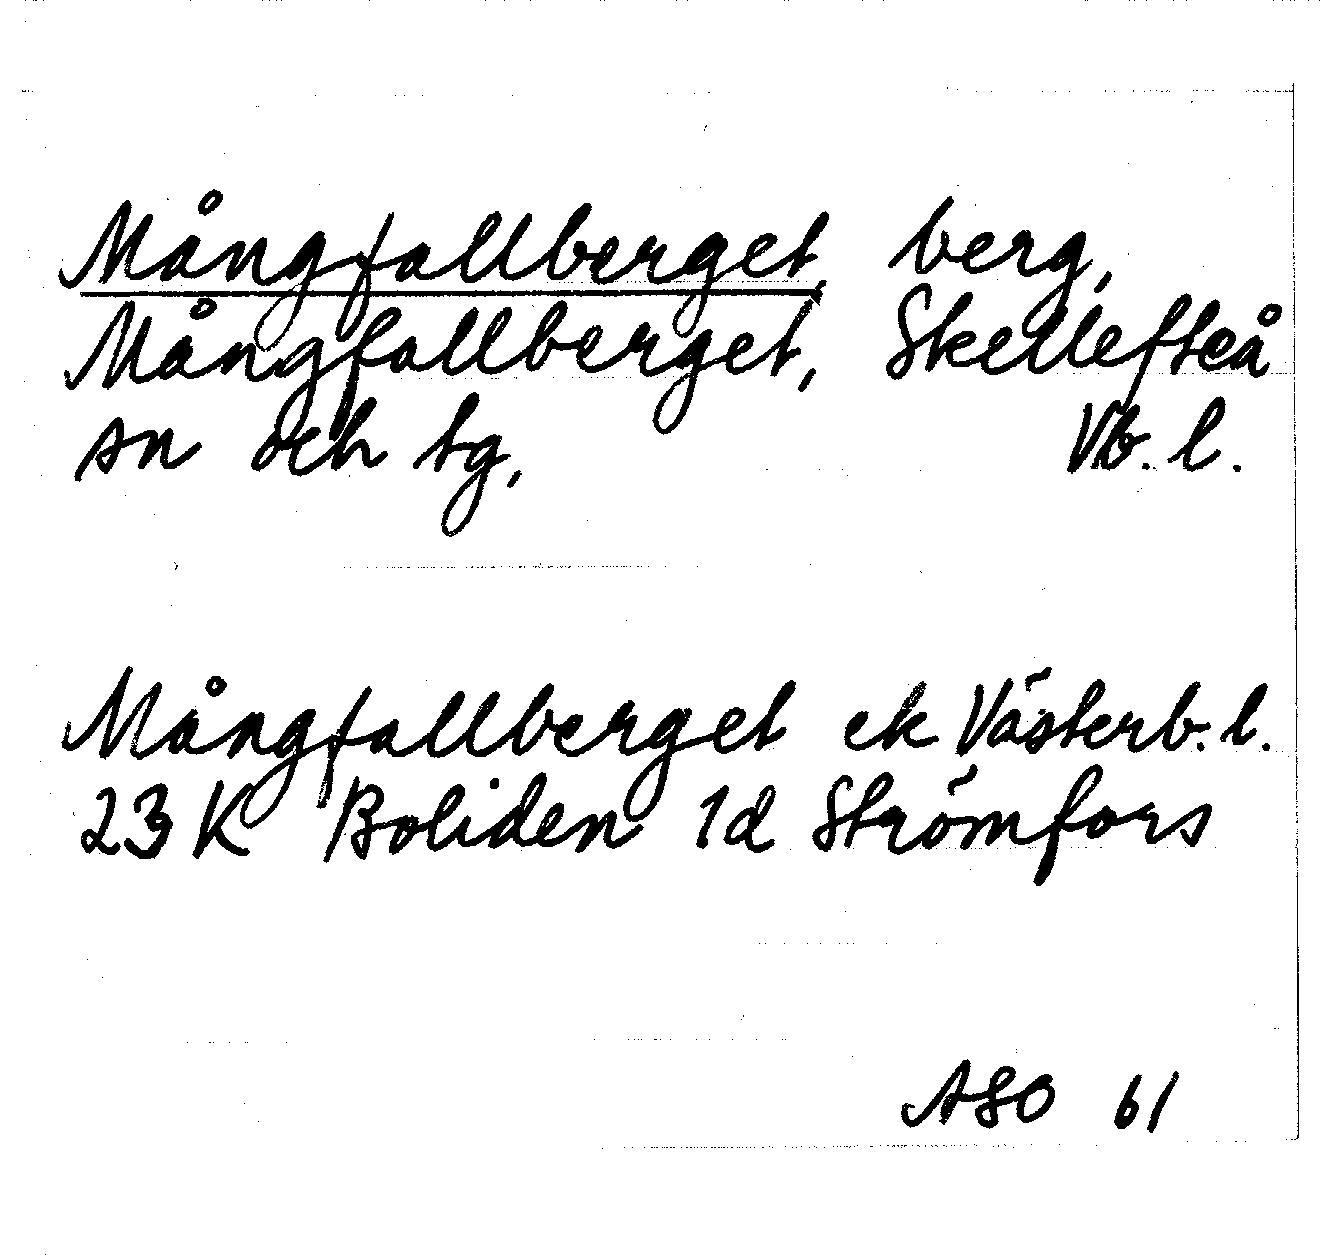 Mångfallberget, berg,
Mångfallberget, Skellefteå
sn och tg, Vb. l.
Mångfallberget ek Västerb. l.
23 K Boliden 1d Strömfors
ASO 61